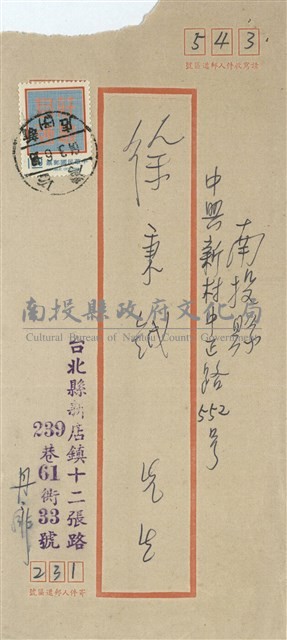 543
號區遞郵人件收寫書請
南投縣
中興新村中正路552号
徐秉鉞 先生
南投縣政府文化局
Cultural Bureau of Nantou County Government
台北縣新店鎮十二張路
239巷61衖33號
231
號區遞郵人件寄